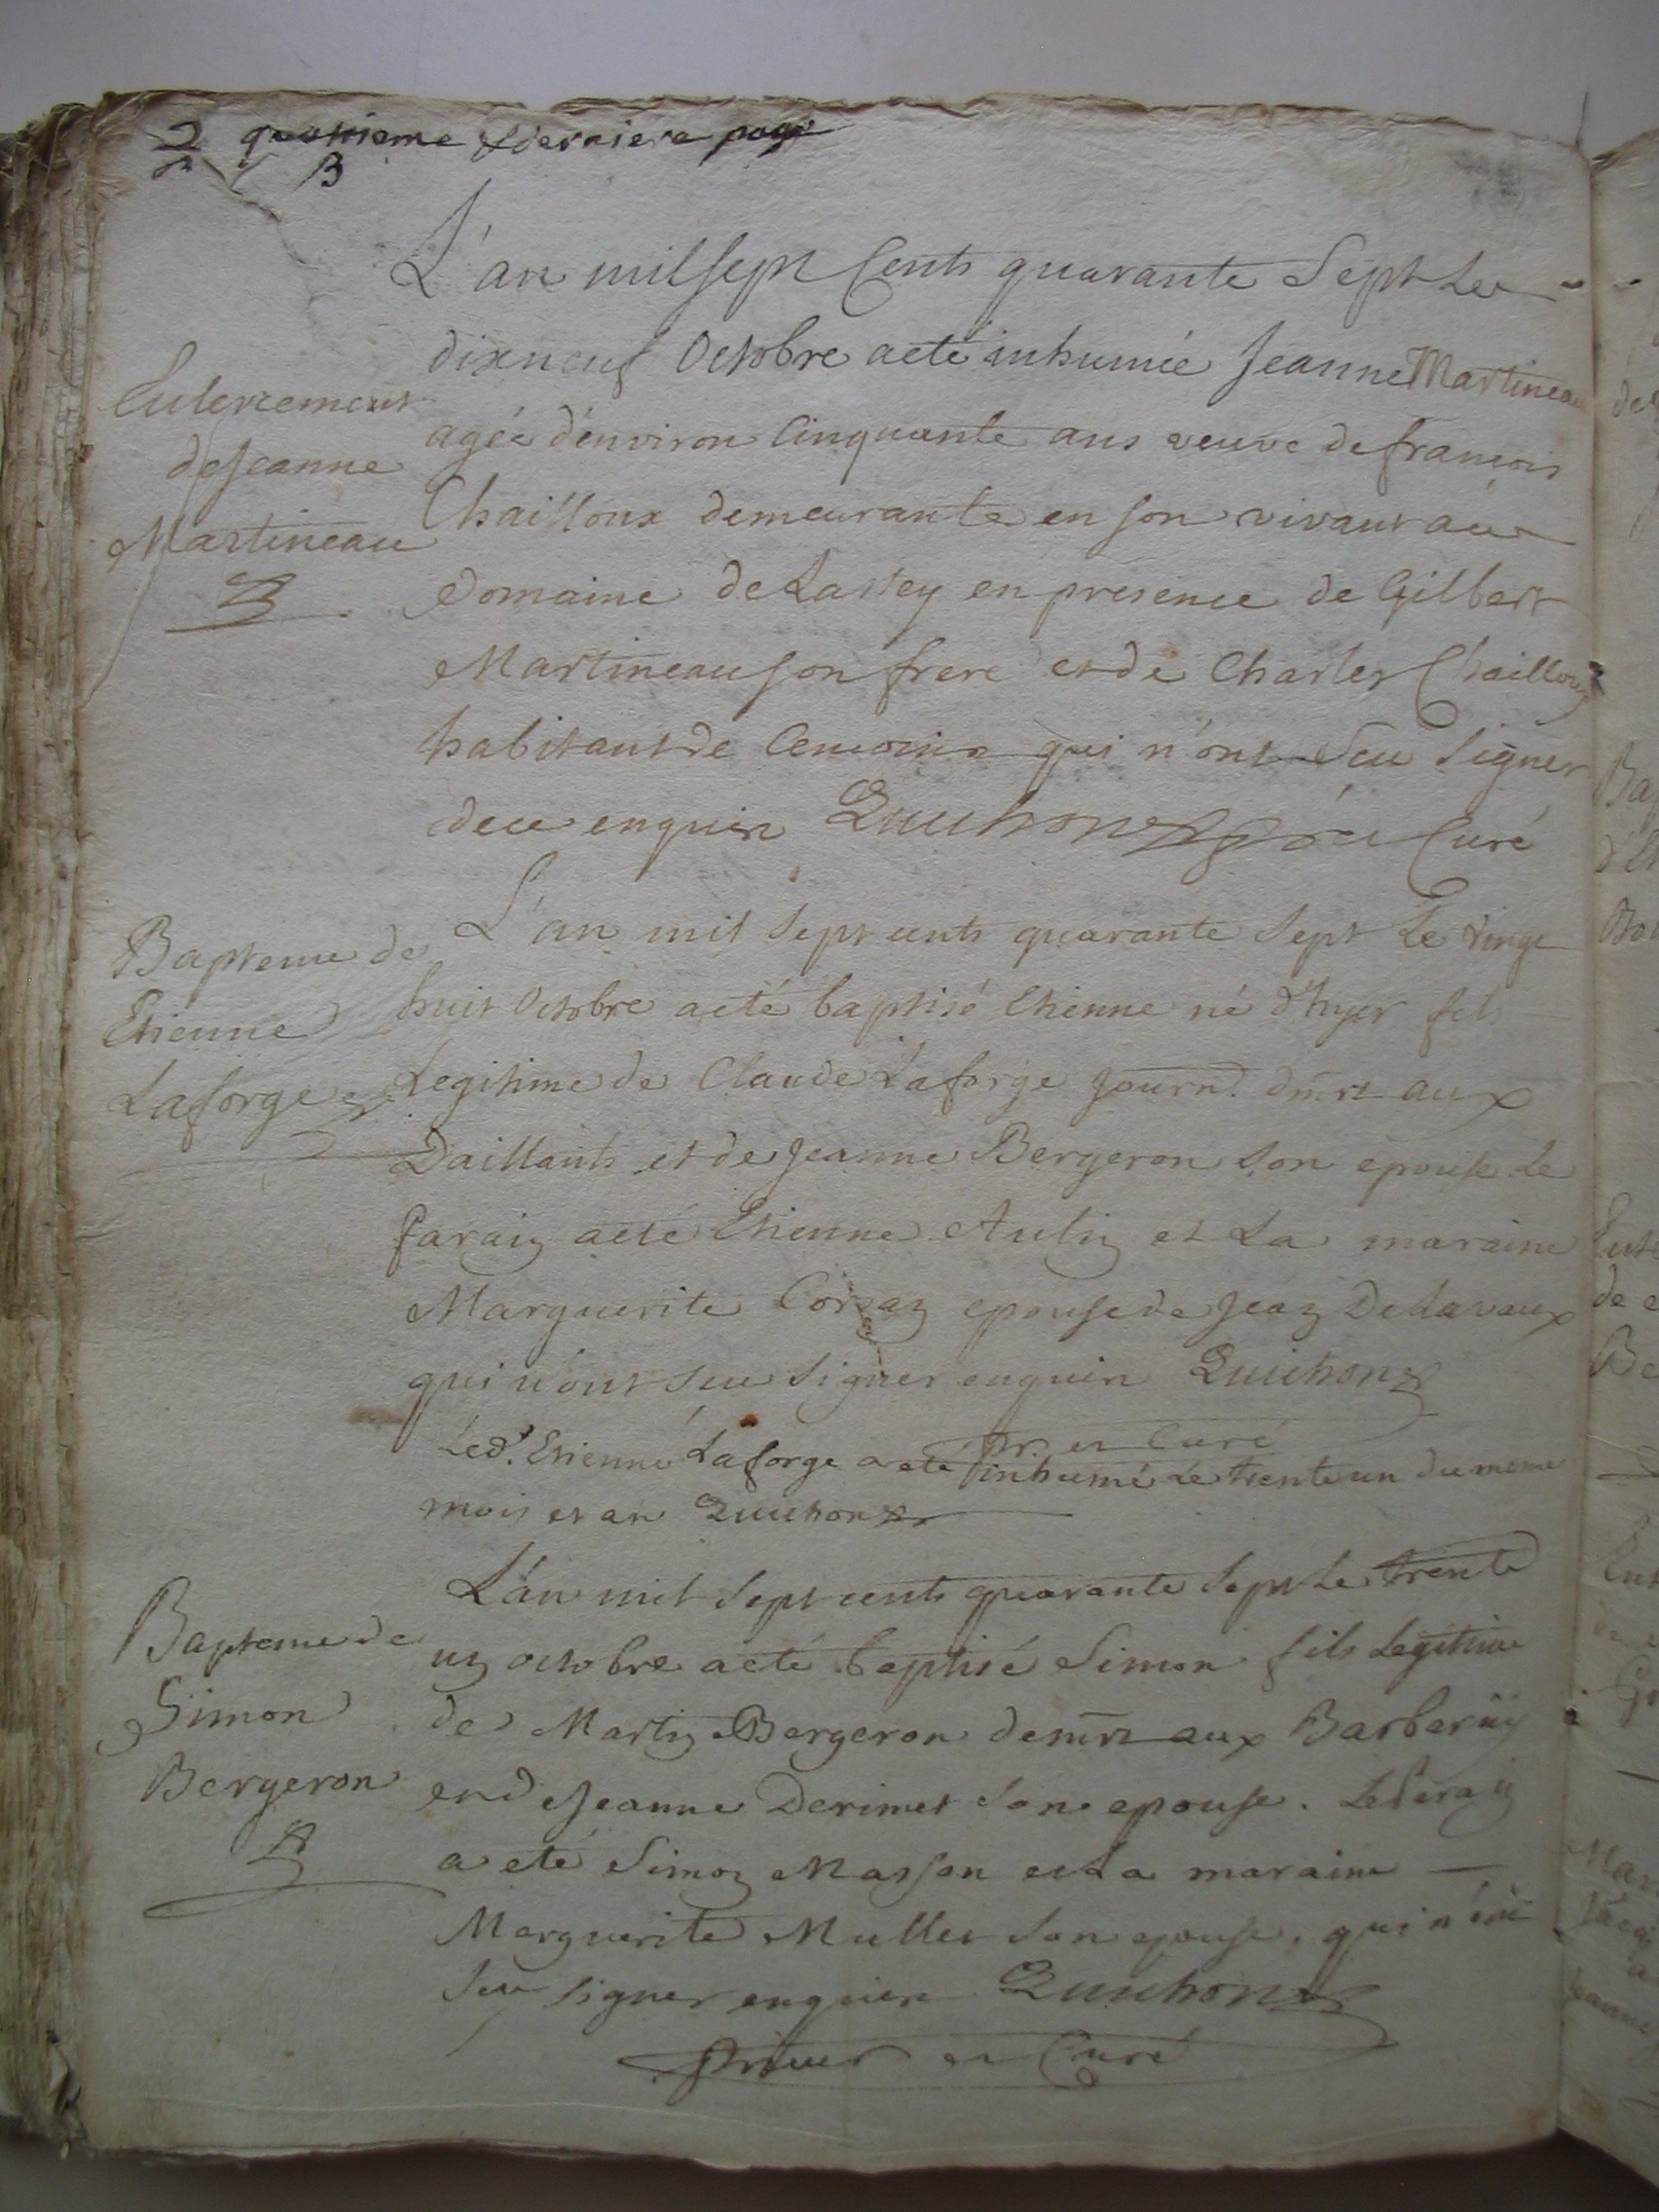 quatrieme & derniere page
B
L'an mil sept Cents quarante Sept Le
dixneuf Octobre a eté inhumée Jeanne Martineau
agée d'environ Cinquante ans veuve de francois
Chailloux demeurante en son vivant au
Domaine de Lastey en presence de Gilbert
Martineau son frere et de Charles Chailloux
habitant de qui n'ont Seu Signer
de ce enquis Quichon Curé
Enterrement
de Jeanne
Martineau
L'an mil Sept cents quarante Sept Le vingt
huit Octobre a eté baptisé Etienne né d'hyer fils
Legitime de Claude Laforge Journ. dmrt aux
Daillants et de Jeanne Bergeron Son epouse Le
Parain a eté Etienne Aulin et La maraine
Marguerite epouse de Jean Delavaux
qui n'ont Seu Signer enquis Quichon
Pr. et Curé
Bapteme de
Etienne
Laforge
Led. Etienne Laforge a eté inhumé Le trente un du meme
mois et an Quichon
L'an mil Sept cents quarante Sept Le trente
un octobre a eté baptisé Simon fils Legitime
de Martin Bergeron demrt aux
et d Jeanne Derimet Son epouse. Le Parain
a eté Simon Masson et La maraine
Marguerite Mullet Son epouse, qui n'ont
Seu Signer enquis Quichon
prieur et Curé
Bapteme de
Simon
Bergeron